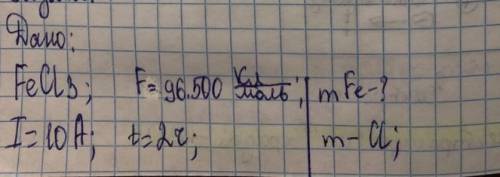 Дано:
FeCl3; F=96.500 Кл/моль; mFe-?
I=10A; t=2ч; m-Cl;